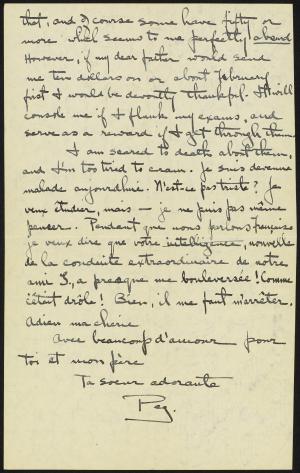 that, and of course some have fifty or
more which seems to me perfectly absurd
However, if my dear father would send
me ten dollars on or about February
first I would be devoutly thankful. It will
console me if I flunk my exams, and
serve as a reward if I get through them
I am scared to death about them,
and I'm too tired to cram. Je suis devenue
malade aujourd'hui. N'est-ce pas triste? Je
veux étudier, mais — je ne puis pas même
penser. Pendant que nous parlons françaises
je veux dire que votre intelligence, nouvelle
de la conduite extraordinaire de notre
ami S., a presque me bouleversée! Comme
c'était drôle! Bien, il me faut m'arrêter.
Adieu ma cherie
Avec beaucoup d'amour pour
toi et mon père
Ta soeur adorante
Peg.